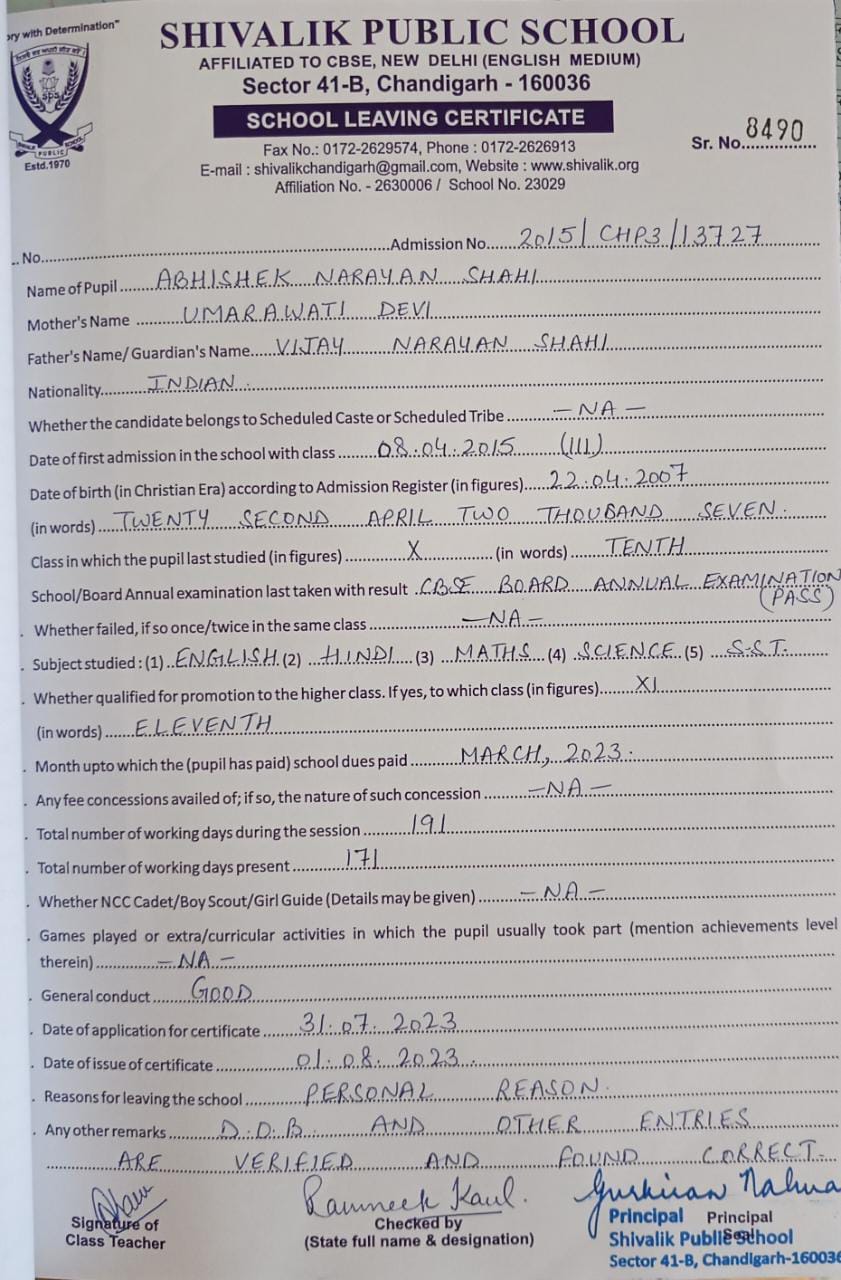 ory with Determination"
SHIVALIK PUBLIC SCHOOL
AFFILIATED TO CBSE, NEW DELHI (ENGLISH MEDIUM)
Sector 41-B, Chandigarh - 160036
SCHOOL LEAVING CERTIFICATE
Fax No.: 0172-2629574, Phone : 0172-2626913
E-mail : shivalikchandigarh@gmail.com, Website : www.shivalik.org
Affiliation No. - 2630006 / School No. 23029
Sr. No. 8490
SPS
PUBLIC
Estd.1970
No. Admission No. 2015/CHP3/13727
Name of Pupil ABHISHEK NARAYAN SHAHI
Mother's Name UMARAWATI DEVI
Father's Name/ Guardian's Name VIJAY NARAYAN SHAHI
Nationality INDIAN.
Whether the candidate belongs to Scheduled Caste or Scheduled Tribe —NA—
Date of first admission in the school with class 08.04.2015 (III)
Date of birth (in Christian Era) according to Admission Register (in figures) 22.04.2007
(in words) TWENTY SECOND APRIL TWO THOUBAND SEVEN.
Class in which the pupil last studied (in figures) X (in words) TENTH
School/Board Annual examination last taken with result CBSE BOARD ANNUAL EXAMINATION
(PASS)
Whether failed, if so once/twice in the same class —NA—
Subject studied : (1) ENGLISH (2) HINDI (3) MATHS (4) SCIENCE (5) S.S.T.
Whether qualified for promotion to the higher class. If yes, to which class (in figures) XI
(in words) ELEVENTH
Month upto which the (pupil has paid) school dues paid MARCH, 2023.
Any fee concessions availed of; if so, the nature of such concession —NA—
Total number of working days during the session 191
Total number of working days present 171
Whether NCC Cadet/Boy Scout/Girl Guide (Details may be given) —NA—
Games played or extra/curricular activities in which the pupil usually took part (mention achievements level
therein) —NA—
General conduct GOOD
Date of application for certificate 31.07.2023
Date of issue of certificate 01.08.2023.
Reasons for leaving the school PERSONAL REASON.
Any other remarks D.O.B. AND OTHER ENTRIES
ARE VERIFIED AND FOUND CORRECT.
Ramneek Kaul.
Gurkiran Nalwa
Signature of
Class Teacher
Checked by
(State full name & designation)
Principal
Seal
Principal
Shivalik Public School
Sector 41-B, Chandigarh-160036